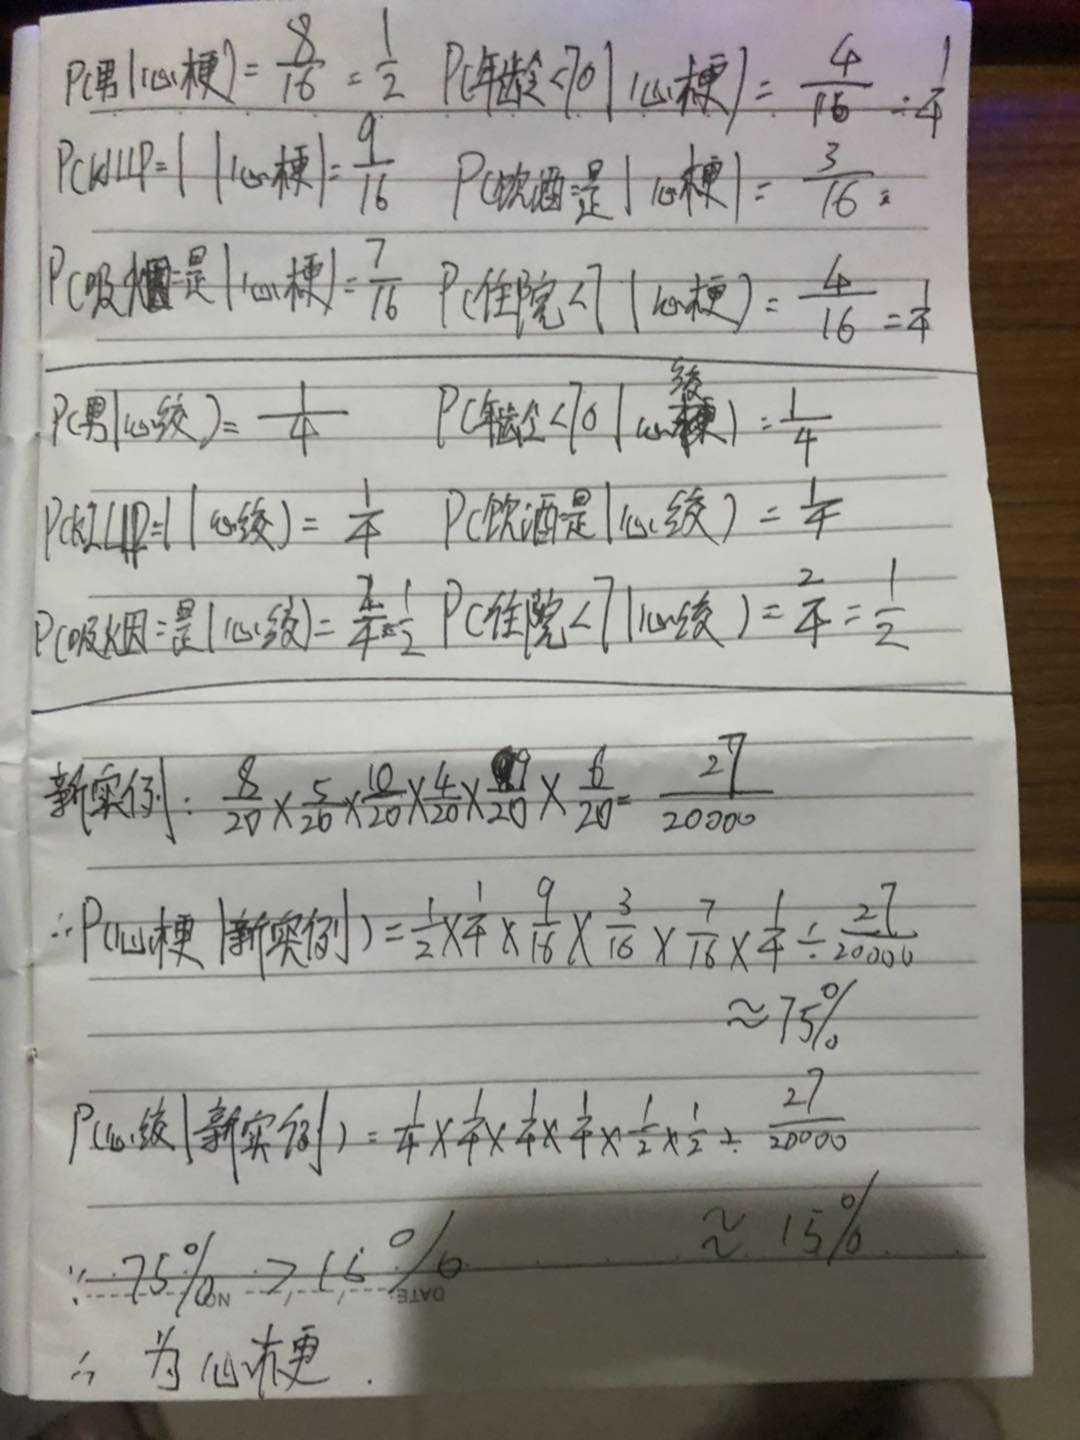 P(男|心梗)=8/16=1/2 P(年龄<70|心梗)=4/16=1/4
P(KILLP=1|心梗)=9/16 P(饮酒=是|心梗)=3/16
P(吸烟=是|心梗)=7/16 P(住院<7|心梗)=4/16=1/4
P(男|心绞)=1/4 P(年龄<70|心绞)=1/4
P(KILLP=1|心绞)=1/4 P(饮酒=是|心绞)=1/4
P(吸烟=是|心绞)=2/4=1/2 P(住院<7|心绞)=2/4=1/2
新实例: 8/20×5/20×10/20×4/20×9/20×6/20=27/20000
∴P(心梗|新实例)=1/2×1/4×9/16×3/16×7/16×1/4÷27/20000
≈75%
P(心绞|新实例)=1/4×1/4×1/4×1/4×1/2×1/2÷27/20000
≈15%
∵75%>15%
NO. DATE:
∴为心梗.